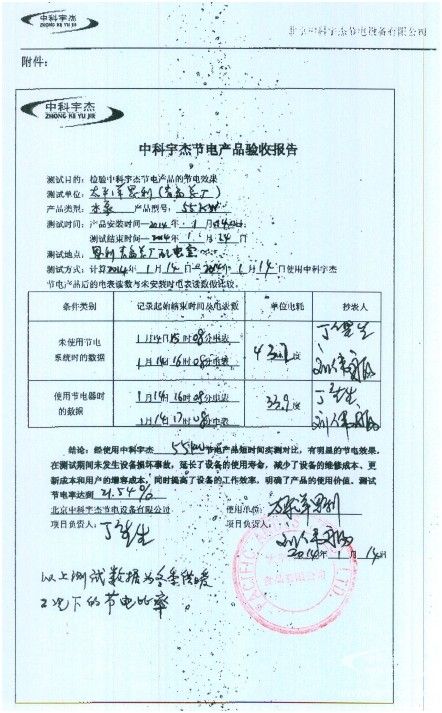 中科宇杰
ZHONG KE YU JIE
北京中科宇杰节电设备有限公司
附件：
中科宇杰
ZHONG KE YU JIE
中科宇杰节电产品验收报告
测试目的：检验中科宇杰节电产品的节电效果
测试单位：太平洋恩利（青岛总厂）
产品类型：水泵 产品型号：55KW
测试时间：产品安装时间—2014年 1月14日
测试结束时间—2014年 1月14日
测试地点：恩利青岛总厂配电室
测试方式：计算2014年1月14日—2014年1月14日使用中科宇杰
节电产品后的电表读数与未安装时电表读数做比较。
条件类别 记录起始结束时间及电表数 单位电耗 抄表人
未使用节电
系统时的数据
1月14日15时08分电表
1月14日16时08分电表
度
使用节电器时
的数据
1月14日16时08分电表
1月14日17时08分电表
33.9度
结论：经使用中科宇杰 55KW节电产品短时间实测对比，有明显的节电效果，
在测试期间未发生设备损坏事故，延长了设备的使用寿命，减少了设备的维修成本、更
新成本和用户的增容成本，同时提高了设备的工作效率，明确了产品的使用价值。测试
节电率达到 21.54%
北京中科宇杰节电设备有限公司 使用单位：太平洋恩利
项目负责人： 项目负责人：
2014年1月14日
以上测试数据为冬季供暖
工况下的节电率